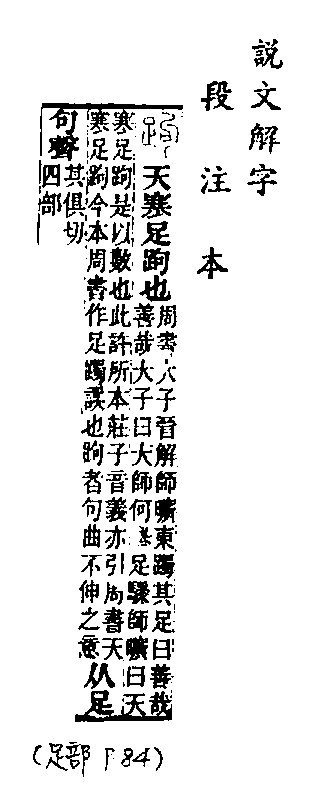 說文解字
段注本
跔 天寒足跔也周書大子晉解師曠東躅其足曰善哉
善哉大子曰大師何舉足驟師曠曰天
寒足跔是以數也此許所本莊子音義亦引周書天
寒足跔今本周書作足躅誤也跔者句曲不伸之意从足
句聲其俱切
四部
(足部下84)